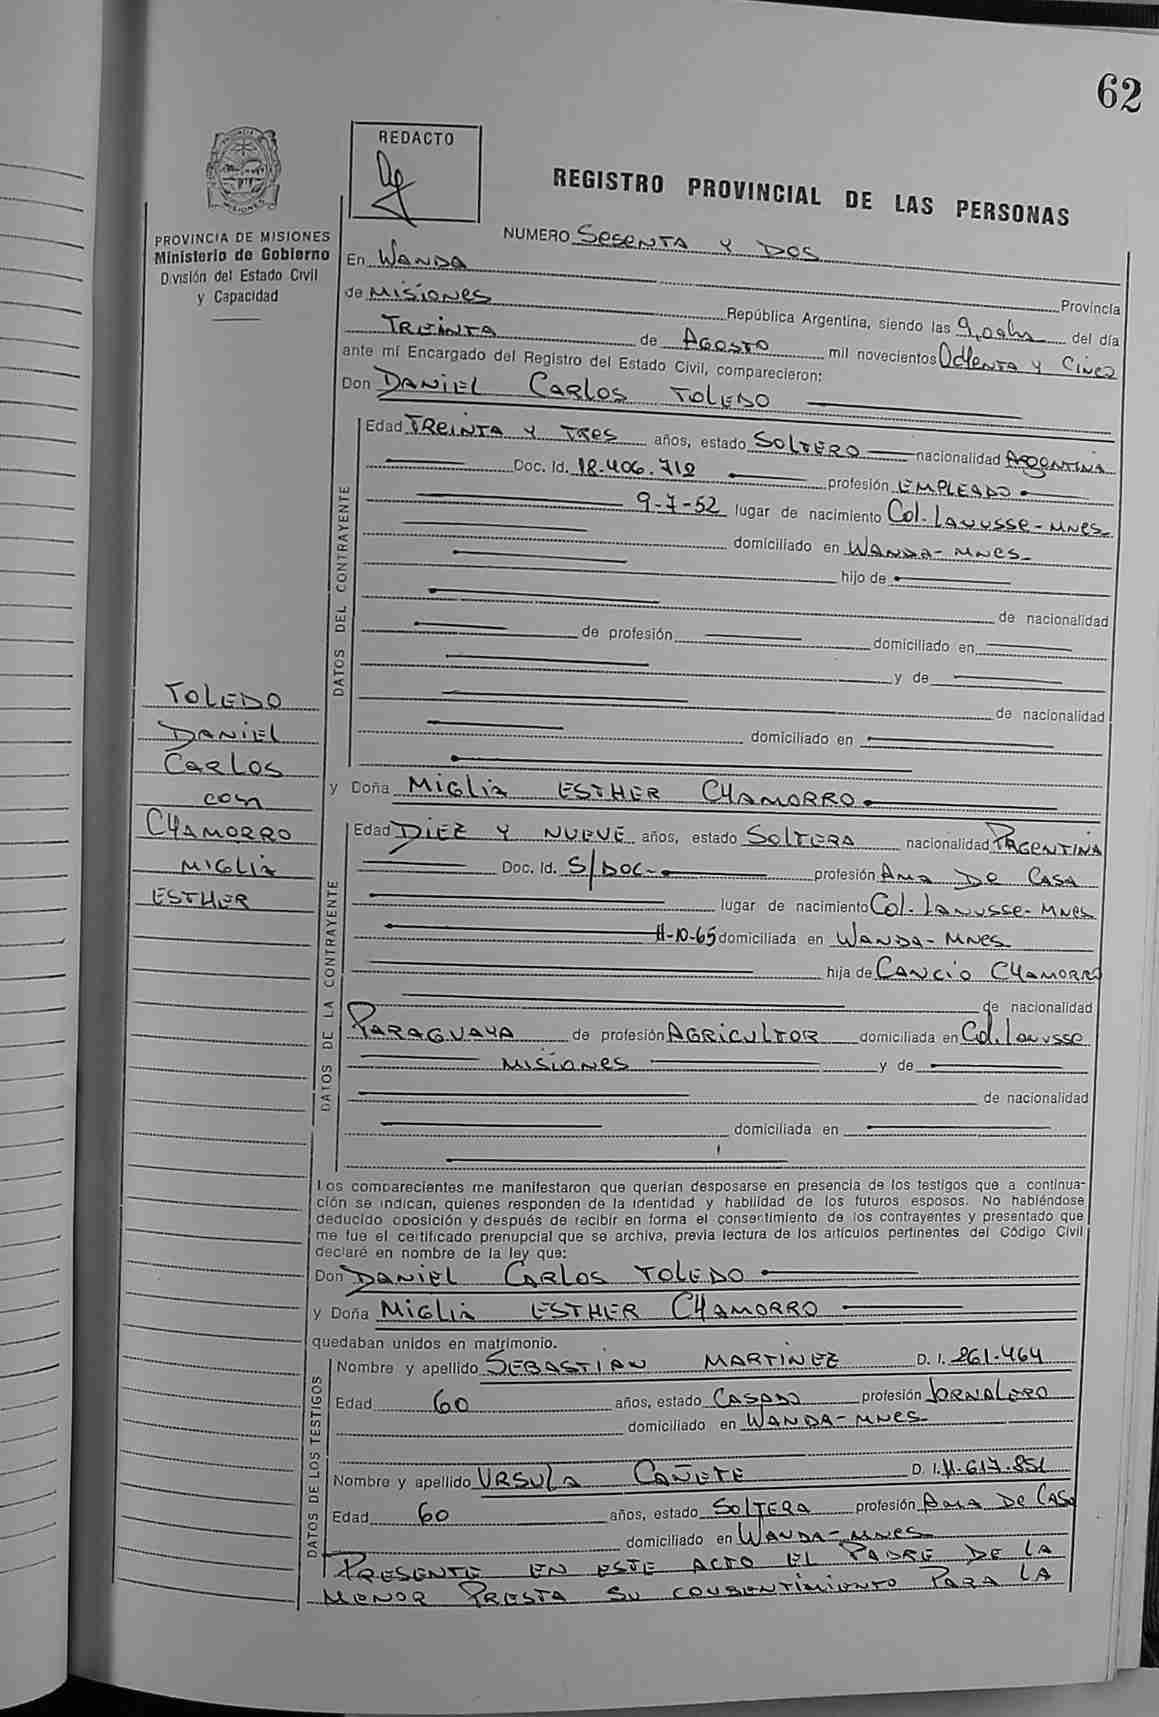 62
REDACTO
PROVINCIA DE MISIONES
Ministerio de Gobierno
División del Estado Civil
y Capacidad
REGISTRO PROVINCIAL DE LAS PERSONAS
NUMERO SESENTA Y DOS
En WANDA Provincia
de MISIONES República Argentina, siendo las 9,00hs del día
TREINTA de AGOSTO mil novecientos OCHENTA Y CINCO
ante mí Encargado del Registro del Estado Civil, comparecieron:
Don DANIEL CARLOS TOLEDO
DATOS DEL CONTRAYENTE
Edad TREINTA Y TRES años, estado SOLTERO nacionalidad ARGENTINA
Doc. Id. 18.406.712 profesión EMPLEADO
9-7-52 lugar de nacimiento Col. LANUSSE-MNES
domiciliado en WANDA-MNES-
hijo de
de nacionalidad
de profesión domiciliado en
y de
de nacionalidad
domiciliado en
TOLEDO
DANIEL
CARLOS
con
CHAMORRO
MIGLIA
ESTHER
y Doña MIGLIA ESTHER CHAMORRO
DATOS DE LA CONTRAYENTE
Edad DIEZ Y NUEVE años, estado SOLTERA nacionalidad ARGENTINA
Doc. Id. S/DOC- profesión AMA DE CASA
lugar de nacimiento Col. LANUSSE-MNES
11-10-65 domiciliada en WANDA-MNES
hija de CANCIO CHAMORRO
de nacionalidad
PARAGUAYA de profesión AGRICULTOR domiciliada en Col. Lanusse
MISIONES y de
de nacionalidad
domiciliada en
Los comparecientes me manifestaron que querían desposarse en presencia de los testigos que a continua-
ción se indican, quienes responden de la identidad y habilidad de los futuros esposos. No habiéndose
deducido oposición y después de recibir en forma el consertimiento de los contrayentes y presentado que
me fue el certificado prenupcial que se archiva, previa lectura de los artículos pertinentes del Código Civil
declaré en nombre de la ley que:
Don DANIEL CARLOS TOLEDO
y Doña MIGLIA ESTHER CHAMORRO
quedaban unidos en matrimonio.
DATOS DE LOS TESTIGOS
Nombre y apellido SEBASTIAN MARTINEZ D. I. 261.464
Edad 60 años, estado CASADO profesión JORNALERO
domiciliado en WANDA-MNES
Nombre y apellido URSULA CAÑETE D. I. 11.617.851
Edad 60 años, estado SOLTERA profesión AMA DE CASA
domiciliado en WANDA-MNES
PRESENTE EN ESTE ACTO EL PADRE DE LA
MENOR PRESTA SU CONSENTIMIENTO PARA LA